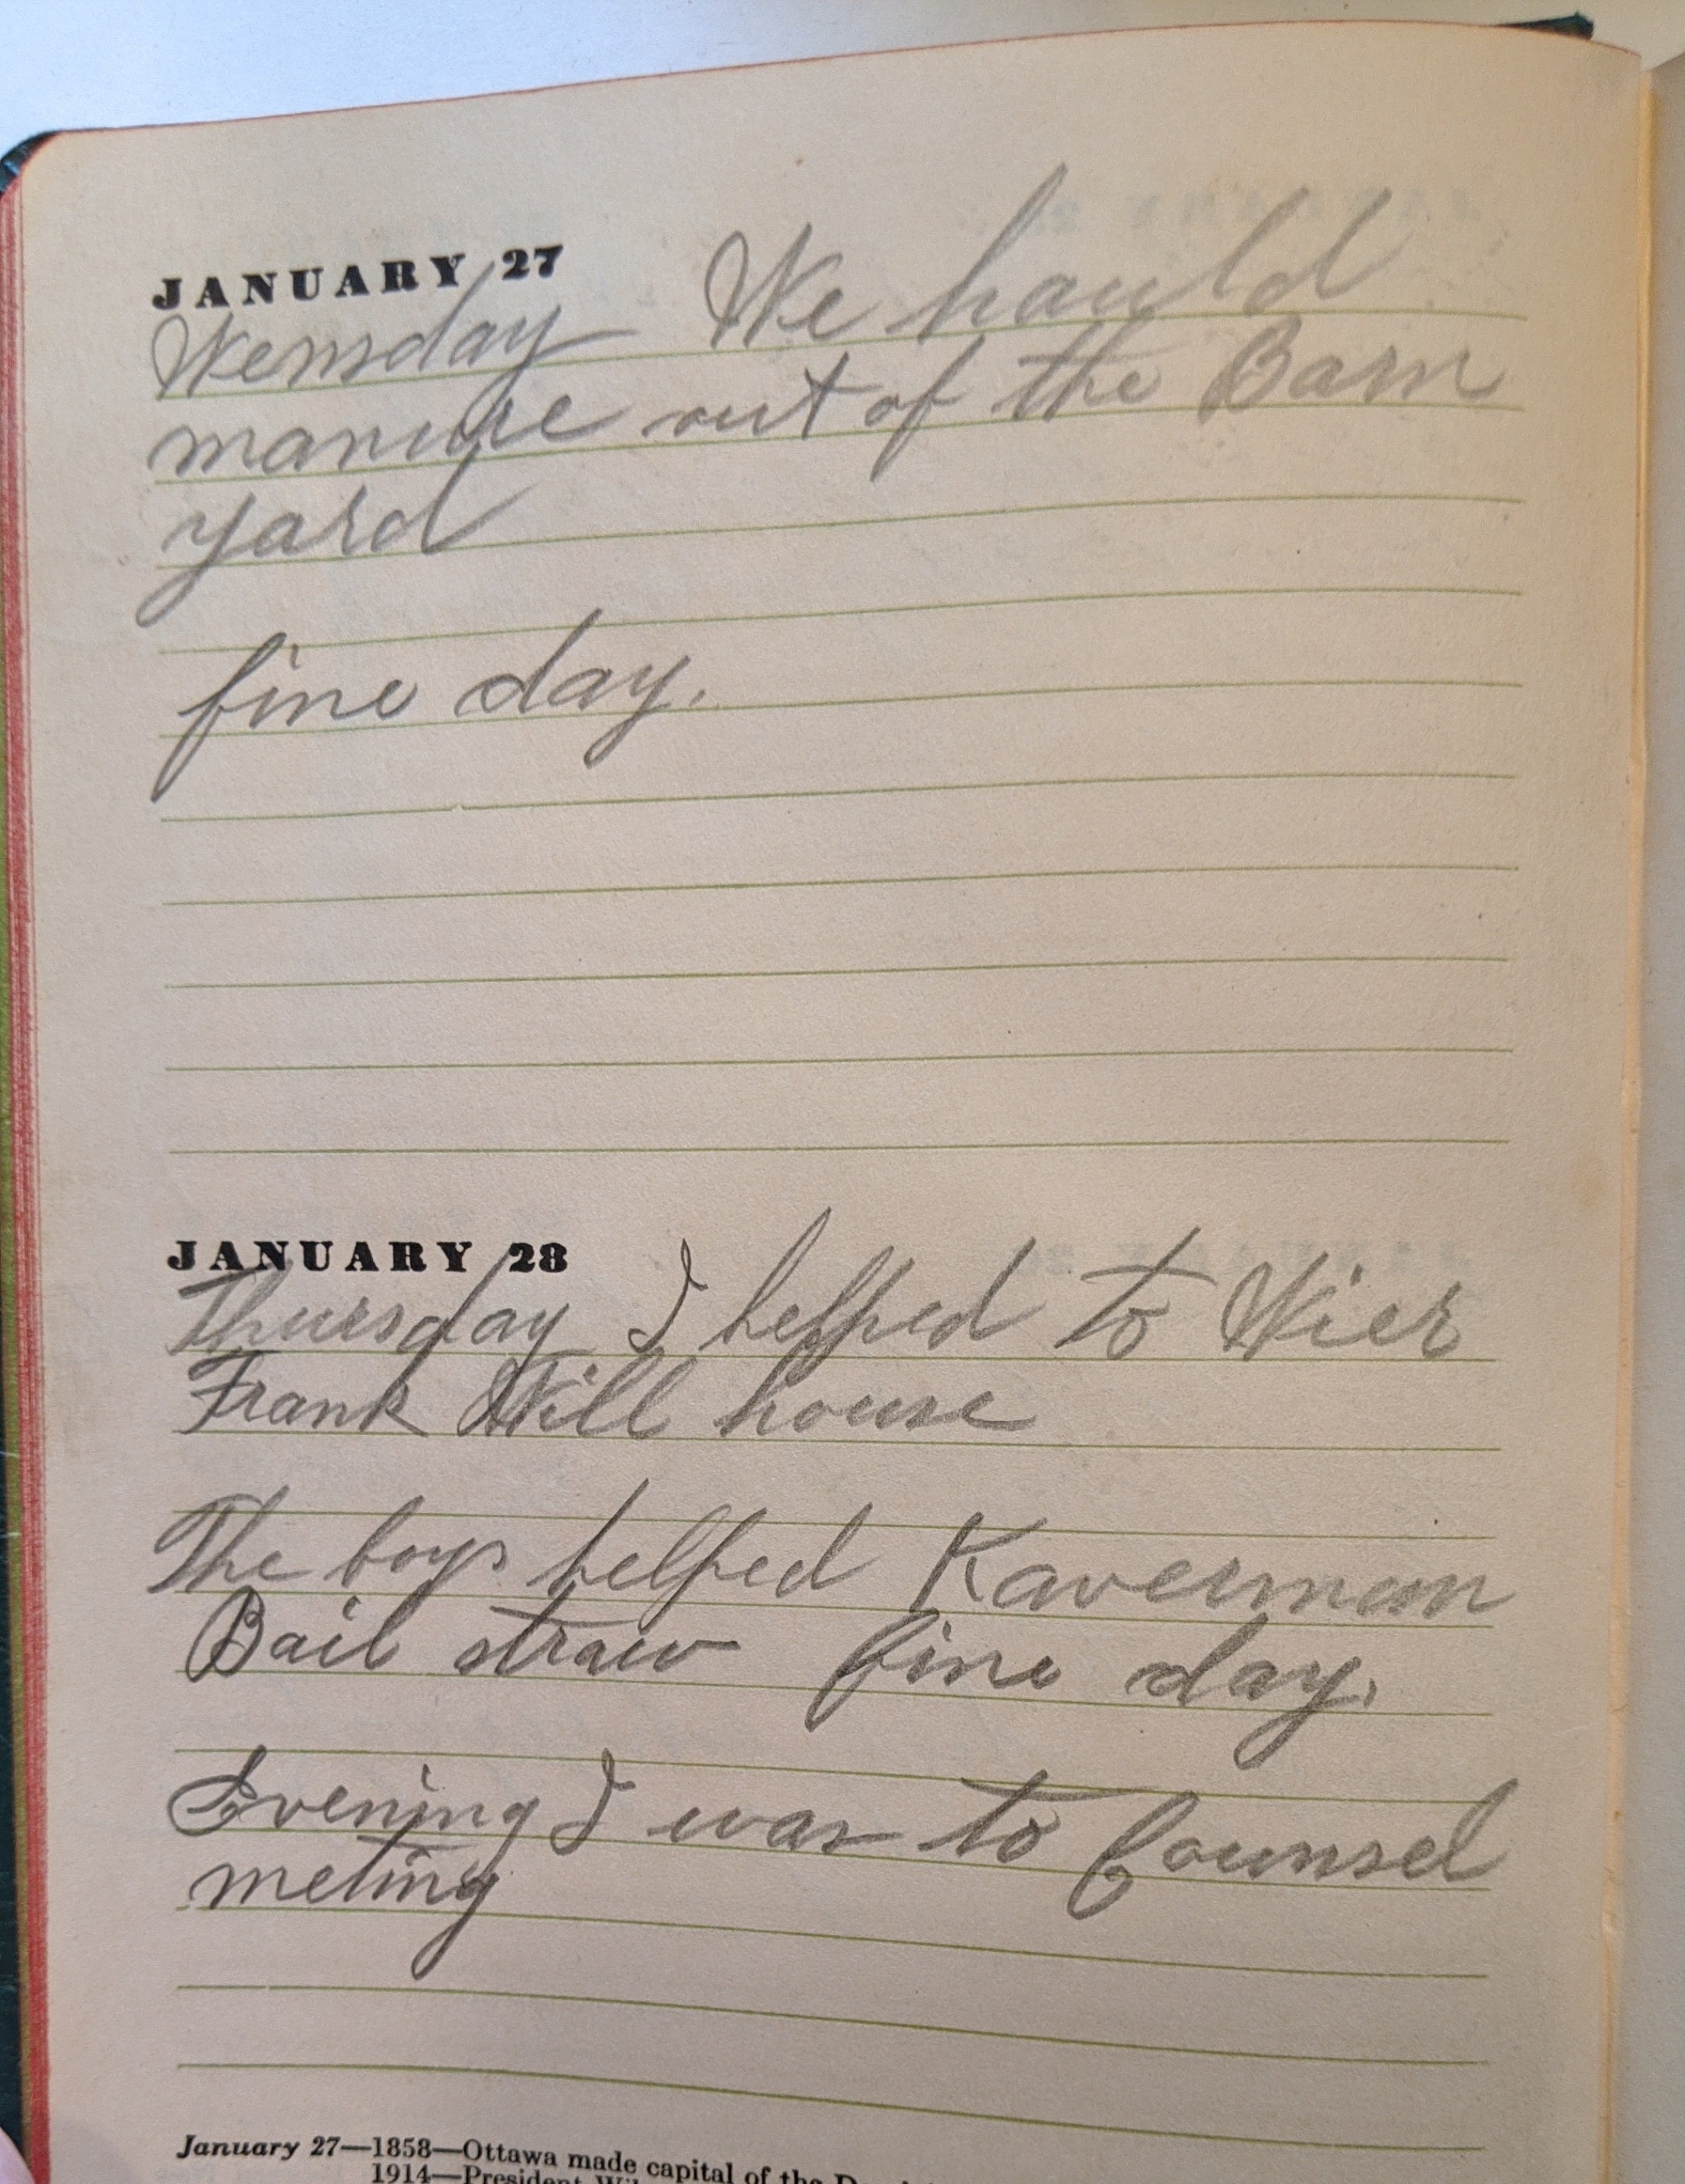 JANUARY 27 We hauld
Wensday
manure out of the Barn
yard
fine day.
JANUARY 28
Thursday I helped to Wier
Frank Will house
The boys helped Kaverman
Bail straw fine day.
Evening I was to Counsel
meting
January 27—1858—Ottawa made capital of the
1914—President